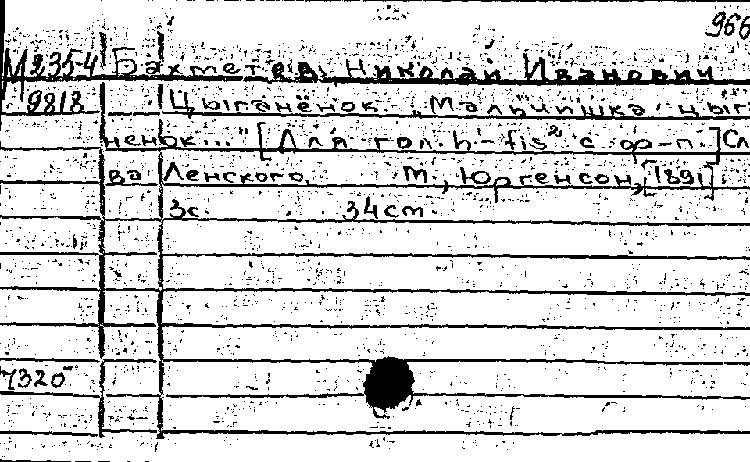 966
М 235-4 Бахметев, Николай Иванович
9818 Цыганёнок. „Мальчишка цыг
ненок..." [Для гол. h-fis² с ф-п.] Сл
ва Ленского. М., Юргенсон, [1891]
3с. 34см.
7320